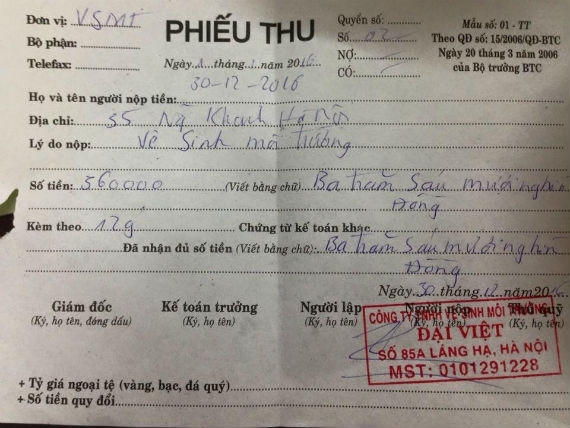 Đơn vị: VSMT
Bộ phận:
Telefax:
PHIẾU THU
Ngày 1 tháng 1 năm 2016
30-12-2016
Quyển số:
Số 02
NỢ:
CÓ:
Mẫu số: 01 - TT
Theo QĐ số: 15/2006/QĐ-BTC
Ngày 20 tháng 3 năm 2006
của Bộ trưởng BTC
Họ và tên người nộp tiền:
Địa chỉ: 35 Ng Khanh Hà Nội
Lý do nộp: Vê Sinh môi trường
Số tiền: 360000 (Viết bằng chữ) Ba trăm Sáu mươi nghìn
Đồng
Kèm theo 12g Chứng từ kế toán khác
Đã nhận đủ số tiền (Viết bằng chữ): Ba trăm Sáu mươi nghìn
Đồng
Ngày 30 tháng 12 năm 2016
Giám đốc Kế toán trưởng Người lập Người nộp Thủ quỹ
(Ký, họ tên, đóng dấu) (Ký, họ tên) (Ký, họ tên) (Ký, họ tên) (Ký, họ tên)
CÔNG TY TNHH VỆ SINH MÔI TRƯỜNG
ĐẠI VIỆT
SỐ 85A LÁNG HẠ, HÀ NỘI
MST: 0101291228
+ Tỷ giá ngoại tệ (vàng, bạc, đá quý)
+ Số tiền quy đổi